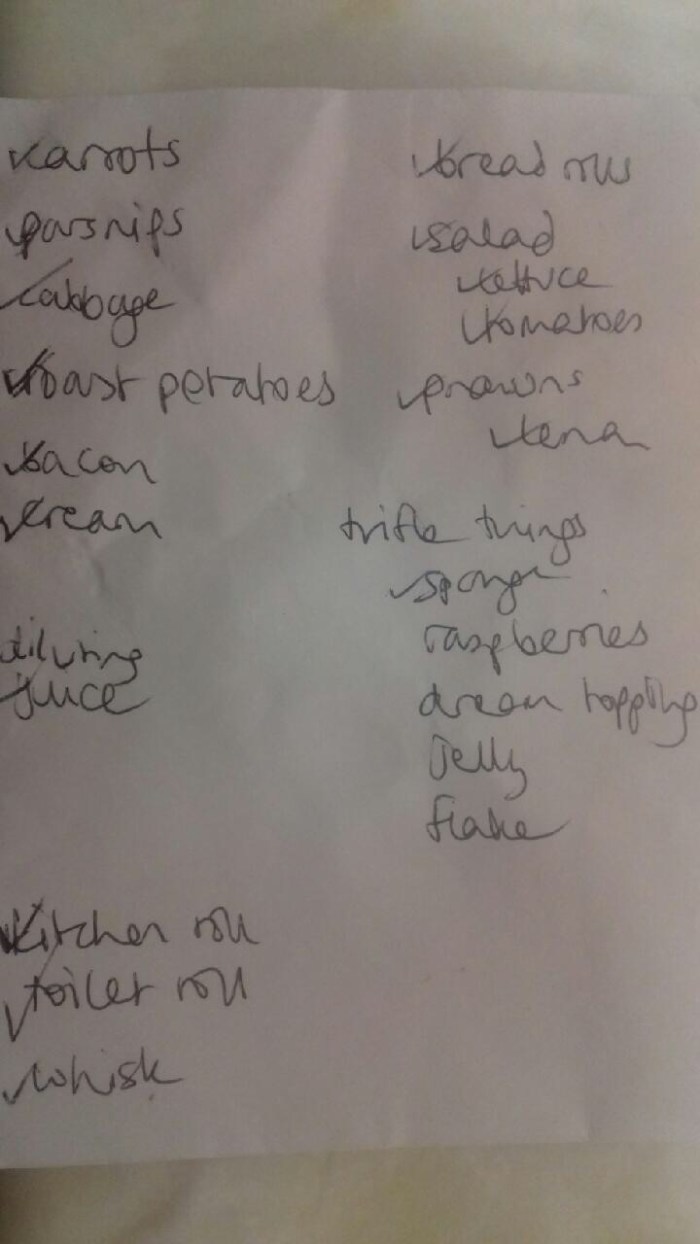 carrots
parsnips
cabbage
roast petatoes
bacon
cream
diluting
juice
kitchen roll
toilet roll
whisk
bread rolls
salad
lettuce
tomatoes
prawns
trifle things
sponge
raspberries
dream topping
jelly
flake